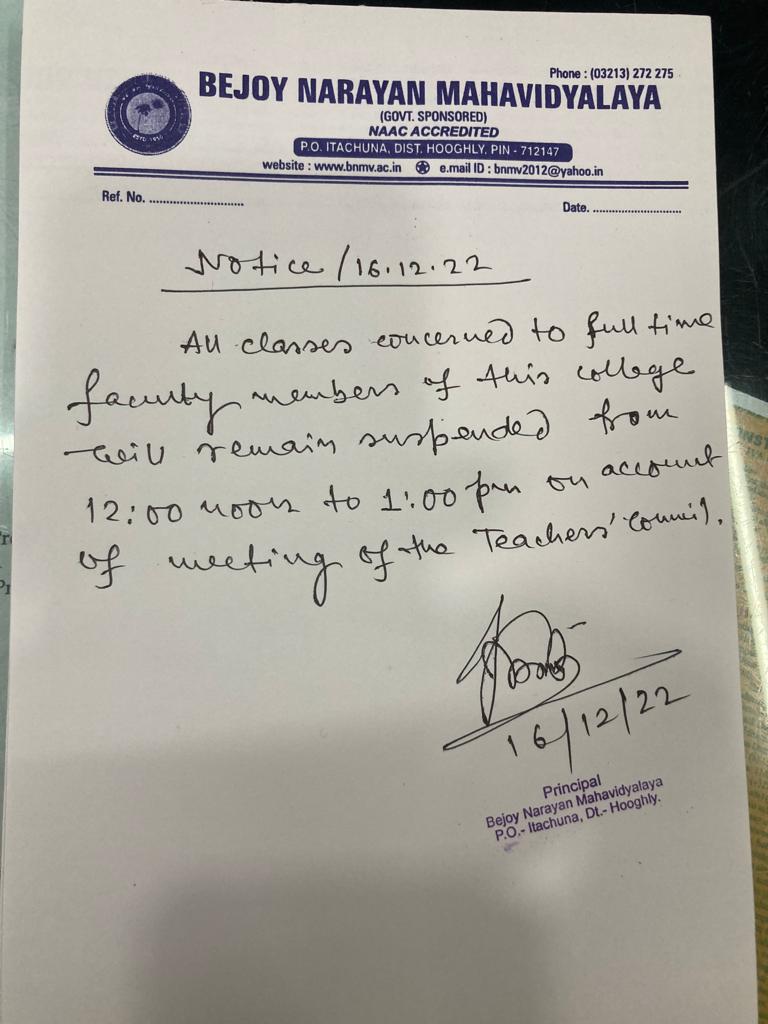 Phone : (03213) 272 275
BEJOY NARAYAN MAHAVIDYALAYA
(GOVT. SPONSORED)
NAAC ACCREDITED
P.O. ITACHUNA, DIST. HOOGHLY, PIN - 712147
website : www.bnmv.ac.in e.mail ID : bnmv2012@yahoo.in
Ref. No. ............................
Date. ............................
Notice / 16.12.22
All classes concerned to full time
faculty members of this college
will remain suspended from
12:00 noon to 1:00 pm on account
of meeting of the Teachers' Council.
16/12/22
Principal
Bejoy Narayan Mahavidyalaya
P.O.- Itachuna, Dt.- Hooghly.